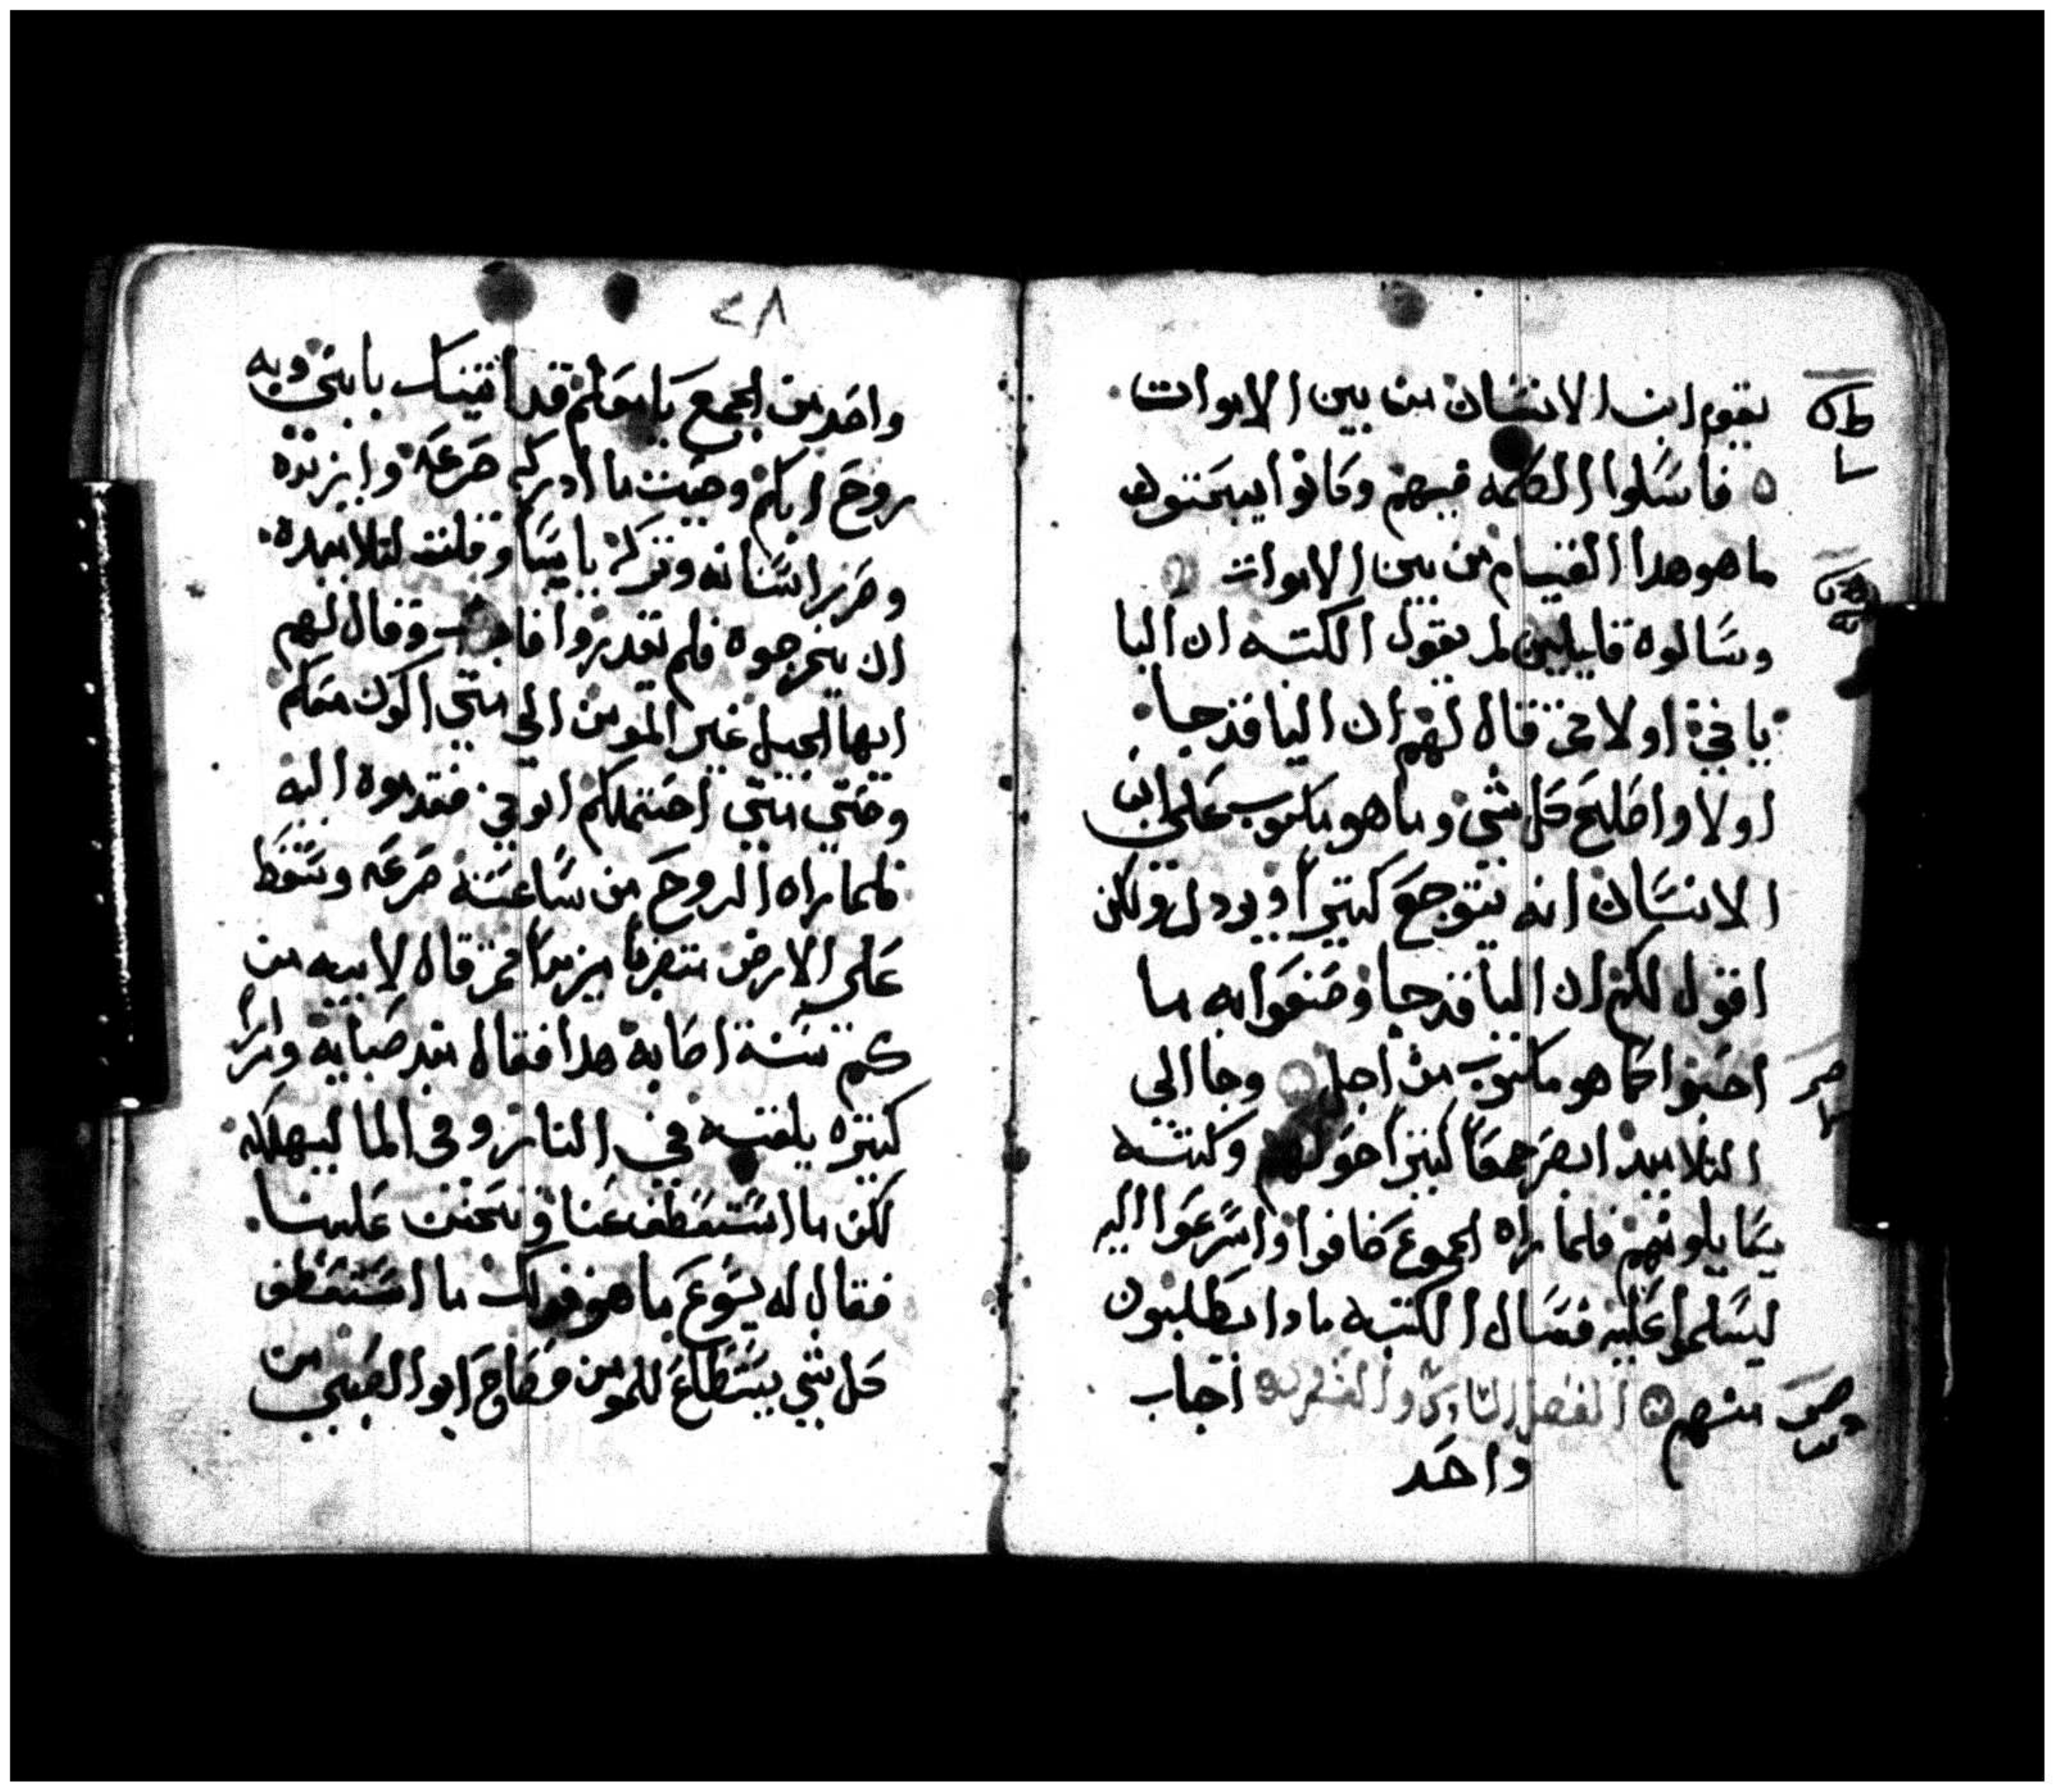 يقوم ابن الانسان من بين الاموات
فامسلوا الكلمه فيهم وكانوا يبحتون
ما هو هدا القيام من بين الاموات
وسالوه قايلين لم يقول الكتبه ان اليا
ياتي اولا قال لهم ان اليا قد جا
اولا واصلح كل شي وما هو مكتوب على ابن
الانسان انه يتوجع كتيرا ويردل ولكن
اقول لكم ان اليا قد جا وصنعوا به ما
احبوا كما هو مكتوب من اجل وجا الى
التلاميد ابصر جمعا كتيرا حولهم وكتبه
يسايلونهم فلما راه الجموع خافوا واسرعوا اليه
ليسلموا عليه فسال الكتبه مادا تطلبون
منهم الفصل والعشرون اجاب
واحد
٢٨
واحد من الجمع يا معلم قد اتيتك بابني وبه
روح ابكم وحيت ما ادركه صرعه وازبده
وضرير اسنانه وتركه يابسا وقلت لتلاميدك
ان يخرجوه فلم يقدروا وقال لهم
ايها الجيل غير المومن الي متي اكون معكم
وحتي متي احتملكم اتوني فقدموه اليه
فلما راه الروح من ساعته صرعه وسقط
على الارض مزبدا تم قال لابيه من
كم سنة اصابه هدا فقال مند صبايه ومرارا
كتيره يلقيه في النار وفي الما ليهلكه
لكن ما استطعت عنا وتحنن علينا
فقال له يسوع ما هو قولك ما استطعت
كل شي يستطاع للمومن فصاح ابو الصبي من